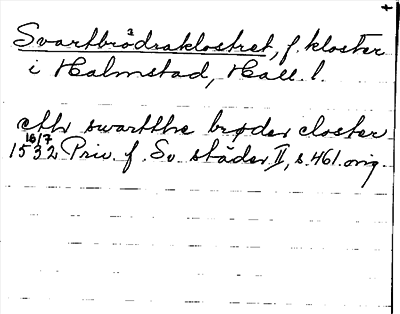 Svartbrödraklostret, f. kloster
i Halmstad, Hall. l.
ettr swartthe brøder closter
1532 16/7 Priv. f. Sv. städer II, s. 461. orig.